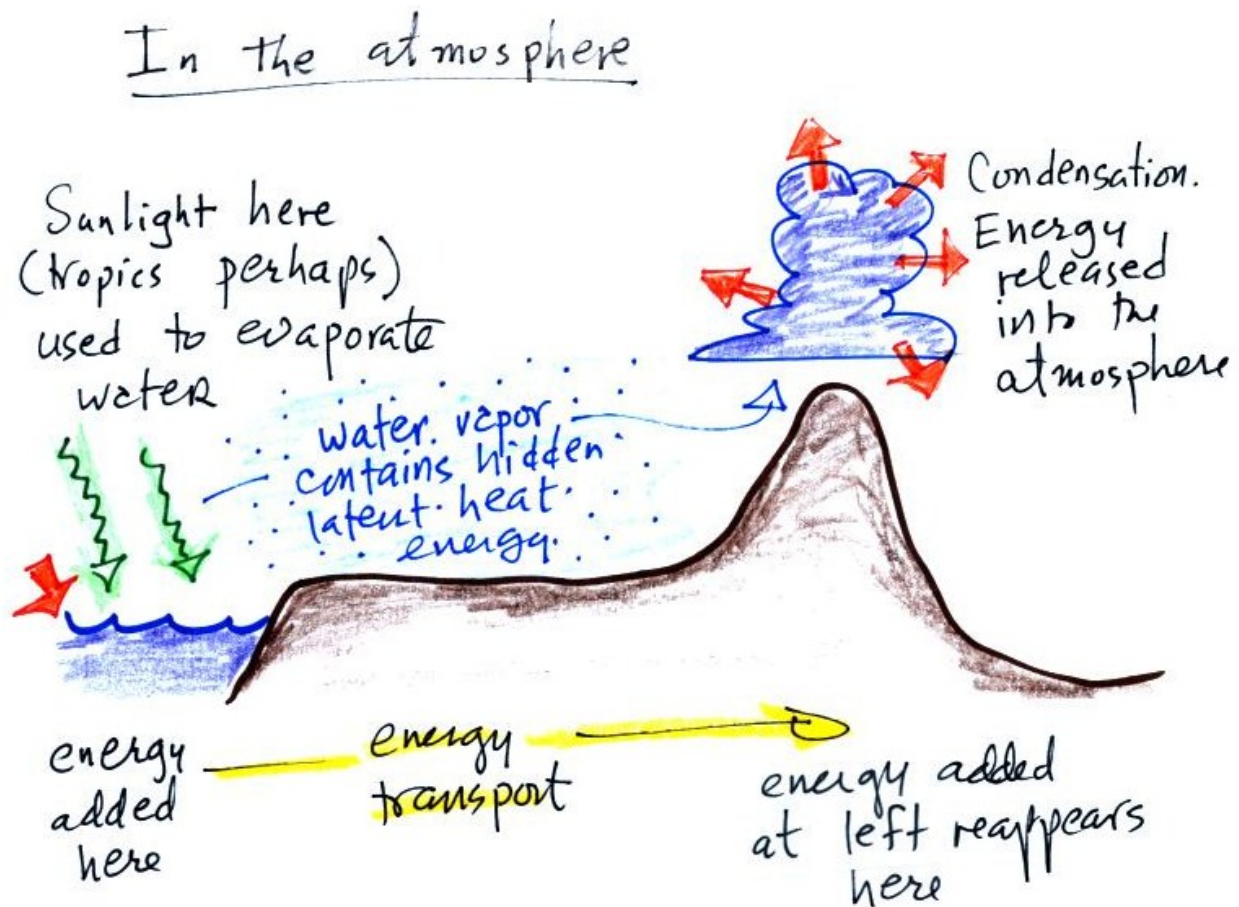 In the atmosphere
Sunlight here
(tropics perhaps)
used to evaporate
water
Condensation.
Energy
released
into the
atmosphere
water vapor
contains hidden
latent heat
energy.
energy
added
here
energy
transport
energy added
at left reappears
here